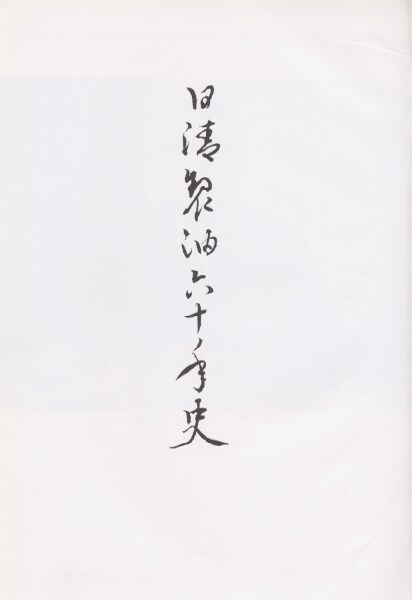 日清製油六十年史